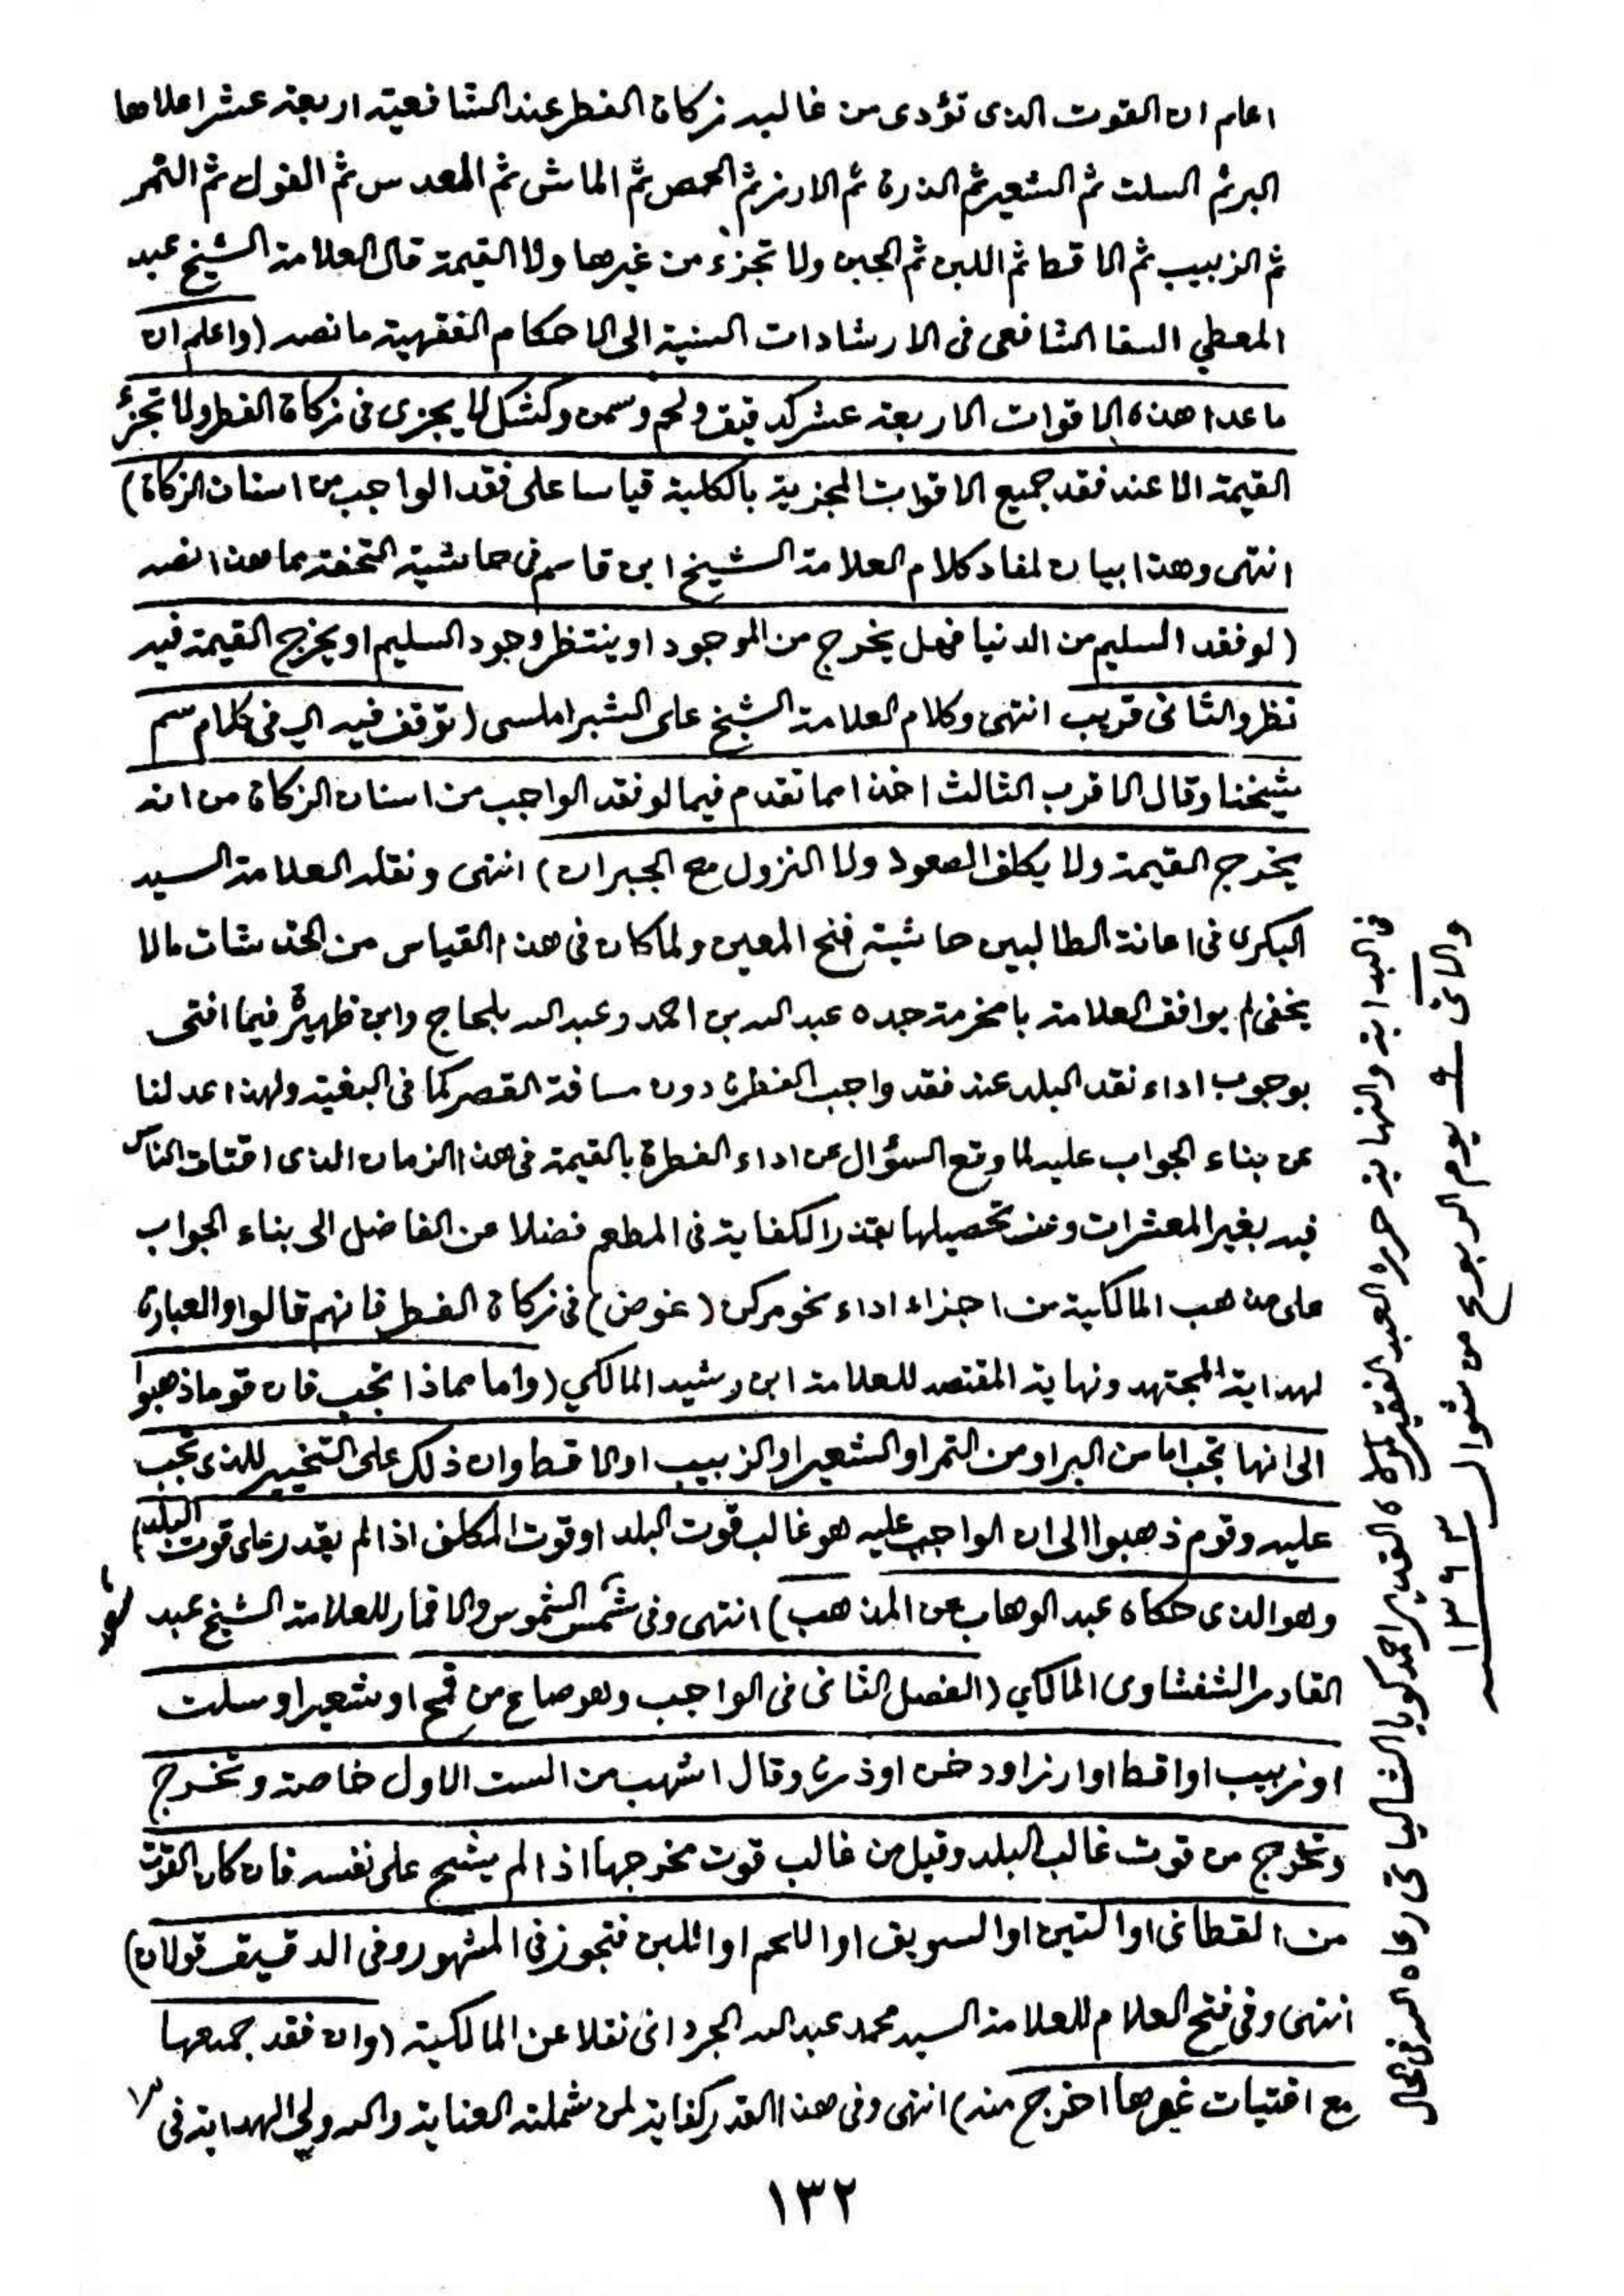 اعلم ان القوت الذى تؤدى من غالبه زكاة الفطر عند الشافعية اربعة عشر اعلاها
البر ثم السلت ثم الشعير ثم الذرة ثم الارز ثم الحمص ثم الماش ثم العدس ثم الفول ثم التمر
ثم الزبيب ثم الاقط ثم اللبن ثم الجبن ولا تجزء من غيرها ولا القيمة قال العلامة الشيخ عبد
المعطي السقا الشافعى فى الارشادات السنية الى الاحكام الفقهية ما نصه (واعلم ان
ما عدا هذه الاقوات الاربعة عشر كدقيق ولحم وسمن وكشك لا يجزى فى زكاة الفطر ولا تجزئ
القيمة الا عند فقد جميع الاقوات المجزية بالكلية قياسا على فقد الواجب من اسنان الزكاة)
انتهى وهذا بيان لمفاد كلام العلامة الشيخ ابن قاسم فى حاشية التحفة مما هذا نصه
(لو فقد السليم من الدنيا فهل يخرج من الموجود او ينتظر وجود السليم او يخرج القيمة فيه
نظر والثانى قريب انتهى وكلام العلامة الشيخ على الشبراملسى (توقف فيه اى فى كلام سم
شيخنا وقال الاقرب الثالث اخذا مما تقدم فيما لو فقد الواجب من اسنان الزكاة من انه
يخرج القيمة ولا يكلف الصعود ولا النزول مع الجبران) انتهى ونقله العلامة السيد
البكرى فى اعانة الطالبين حاشية فتح المعين ولما كان فى هذا القياس من الخدشات مالا
يخفى لم يوافق العلامة بامخرمة جده عبد الله بن احمد وعبد الله بلحاج وابن ظهيرة فيما افتى
بوجوب اداء نقد البلد عند فقد واجب الفطرة دون مسافة القصر كما فى البغية ولهذا عدلنا
عن بناء الجواب عليه لما وقع السؤال عن اداء الفطرة بالقيمة فى هذا الزمان الذى اقتات الناس
فيه بغير المعشرات وعند تحصيلها بقدر الكفاية فى المطعم فضلا عن الفاضل الى بناء الجواب
على مذهب المالكية من اجزاء اداء نحو مركن (غوض) فى زكاة الفطر فانهم قالوا والعبارة
لهداية المجتهد ونهاية المقتصد للعلامة ابن رشيد المالكي (واما مماذا تجب فان قوما ذهبوا
الى انها تجب اما من البر او من التمر او الشعير او الزبيب او الاقط وان ذلك على التخيير للذى تجب
عليه وقوم ذهبوا الى ان الواجب عليه هو غالب قوت البلد او قوت المكلف اذا لم يقدر على قوت البلد)
وهو الذى حكاه عبد الوهاب عن المذهب) انتهى وفى شمس الشموس والاقمار للعلامة الشيخ عبد
القادر الشفشاوى المالكي (الفصل الثانى فى الواجب وهو صاع من قمح او شعير او سلت
او زبيب او اقط او ارز او دخن او ذرة وقال اشهب من الست الاول خاصة وتخرج
وتخرج من قوت غالب البلد وقيل من غالب قوت مخرجها اذا لم يشح على نفسه فان كان القوت
من القطانى او التين او السويق او اللحم او اللبن فتجوز فى المشهور وفى الدقيق قولان)
انتهى وفى فتح العلام للعلامة السيد محمد عبد الله الجردانى نقلا عن المالكية (وان فقد جميعها
مع اقتيات غيرها اخرج منه) انتهى وفى هذا القدر كفاية لمن شملته العناية والله ولي الهداية فى
فى البداية والنهاية حرره العبد الفقير لمولاه القدير احمد كويا الشالياتى رعاه الله فى الحال
والاتى ٩ يوم الربوع من شوال ١٣٦٣
١٣٢